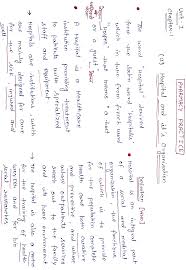 Unit 1
Chapter
PHARMACY PRACTICE
(a) Hospital and its Organization
The word "hospital" derived
from Latin word "hospes"
which in turn from French word
"hospes" that means "a host
or a guest"
A hospital is a healthcare
institution providing treatment
with specialized
staff and equipment
Hospitals are institutions, which
are mainly
for the sick, injured and
Definition (WHO)
Hospital is an integral part
of a social and medical
organization, the function
of which is to provide
for the population complete
health care both curative
and preventive and
whose out patients services
reach out to the family
and its home environment
The hospital is also a centre
for the training of health
workers and for bio
social research